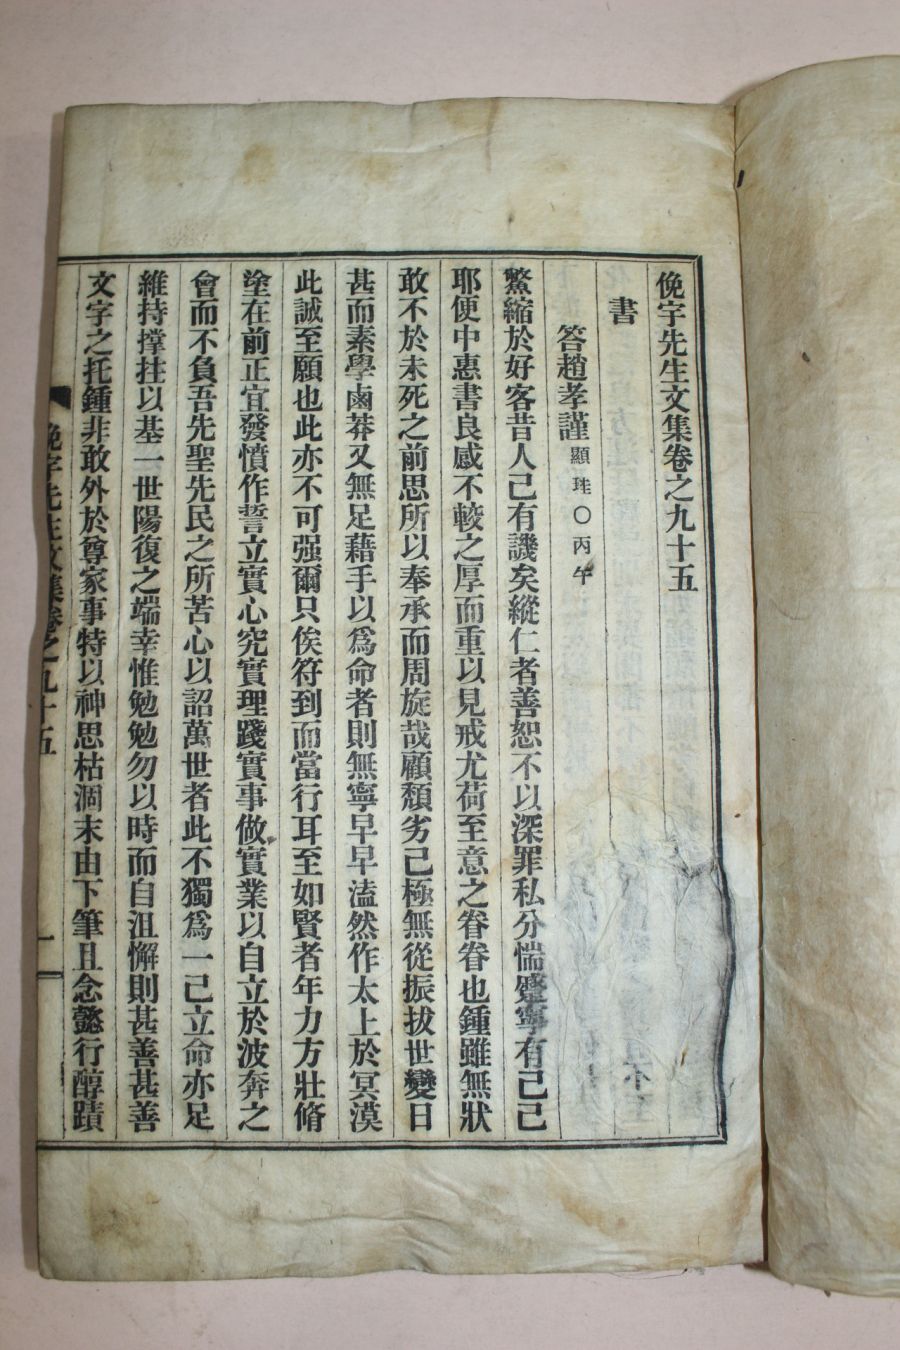 俛宇先生文集卷之九十五
書
答趙孝謹 顯珪○丙午
鱉縮於好客昔人已有譏矣縱仁者善恕不以深罪私分惴蹙寧有已已
耶便中惠書良感不較之厚而重以見戒尤荷至意之眷眷也鍾雖無狀
敢不於未死之前思所以奉承而周旋哉顧頹劣已極無從振拔世變日
甚而素學鹵莽又無足藉手以爲命者則無寧早早溘然作太上於冥漠
此誠至願也此亦不可强爾只俟符到而當行耳至如賢者年力方壯脩
塗在前正宜發憤作誓立實心究實理踐實事做實業以自立於波奔之
會而不負吾先聖先民之所苦心以詔萬世者此不獨爲一己立命亦足
維持撑拄以基一世陽復之端幸惟勉勉勿以時而自沮懈則甚善甚善
文字之托鍾非敢外於尊家事特以神思枯涸末由下筆且念懿行醇蹟
俛宇先生文集卷之九十五
一